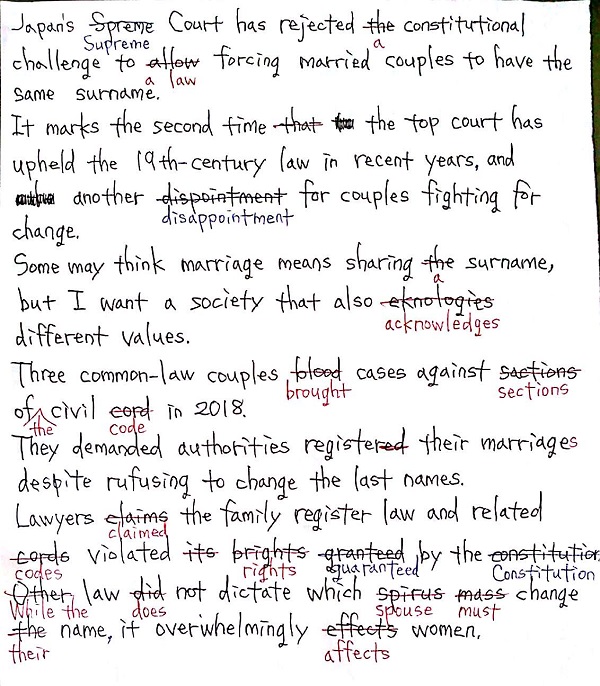 Japan's Spreme Court has rejected the constitutional
Supreme a
challenge to allow forcing married couples to have the
a law
same surname.
It marks the second time that to the top court has
upheld the 19th-century law in recent years, and
another dispointment for couples fighting for
disappointment
change.
Some may think marriage means sharing the surname,
a
but I want a society that also eknologies
acknowledges
different values.
Three common-law couples blood cases against sactions
brought sections
of civil cord in 2018.
the code
They demanded authorities registered their marriages
despite rufusing to change the last names.
Lawyers claims the family register law and related
claimed
cords violated its brights granted by the constitution
codes rights guaranteed Constitution
Other law did not dictate which spirus mass change
While the does spouse must
the name, it overwhelmingly effects women.
their affects